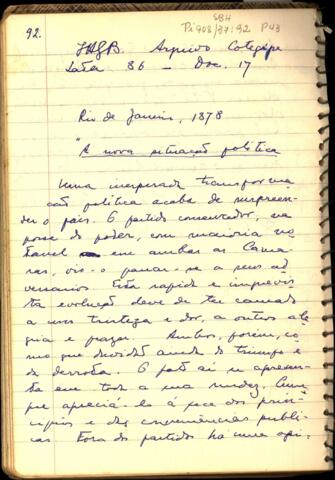 92.
SBH
Pi 908/37:92 P43
IHGB. Arquivo Cotegipe
Lata 86 – Doc. 17
Rio de Janeiro, 1878
"A nova situação política
Uma inesperada transforma
ção política acaba de surpreen-
der o país. O partido conservador, na
posse do poder, com maioria no
tável em ambas as Cama-
ras, vio-o passar-se a seus ad
versarios. Esta rapida e imprevis
ta evolução deve de ter causado
a uns tristeza e dor, a outros ale
gria e prazer. Ambos, porém, co
mo que duvidão ainda do triumpho e
da derrota. O fato ai se apresen-
ta em toda a sua nudez. Cum
pre apreciá-lo á luz dos prin-
cipios e das conveniências publi-
cas. Fora dos partidos ha uma opi-